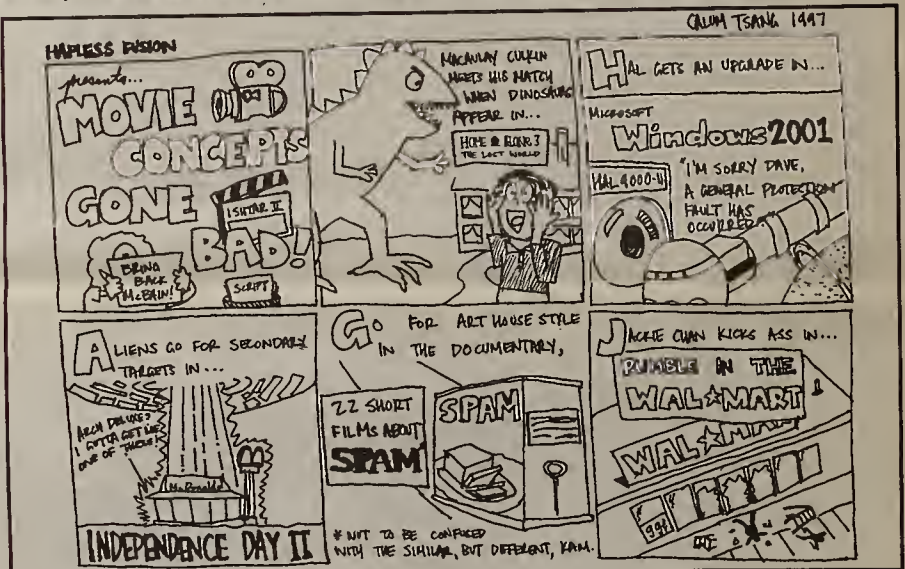 CALUM TSANG 1997
HAPLESS FUSION
presents...
MOVIE
CONCEPTS
GONE
BAD!
ISHTAR II
BRING
BACK
McBAIN!
SCRIPT
MACAULAY CULKIN
MEETS HIS MATCH
WHEN DINOSAURS
APPEAR IN...
HOME ALONE 3
THE LOST WORLD
HAL GETS AN UPGRADE IN...
MICROSOFT
Windows 2001
HAL 9000-II
"I'M SORRY DAVE,
A GENERAL PROTECTION
FAULT HAS
OCCURRED"
ALIENS GO FOR SECONDARY
TARGETS IN...
ARCH DELUXE?
I GOTTA GET ME
ONE OF THESE!
McDonald's
INDEPENDENCE DAY II
GO FOR ART HOUSE STYLE
IN THE DOCUMENTARY,
22 SHORT
FILMS ABOUT
SPAM*
SPAM
* NOT TO BE CONFUSED
WITH THE SIMILAR, BUT DIFFERENT, KAM.
JACKIE CHAN KICKS ASS IN...
RUMBLE IN THE
WAL★MART
WAL★MART
99¢